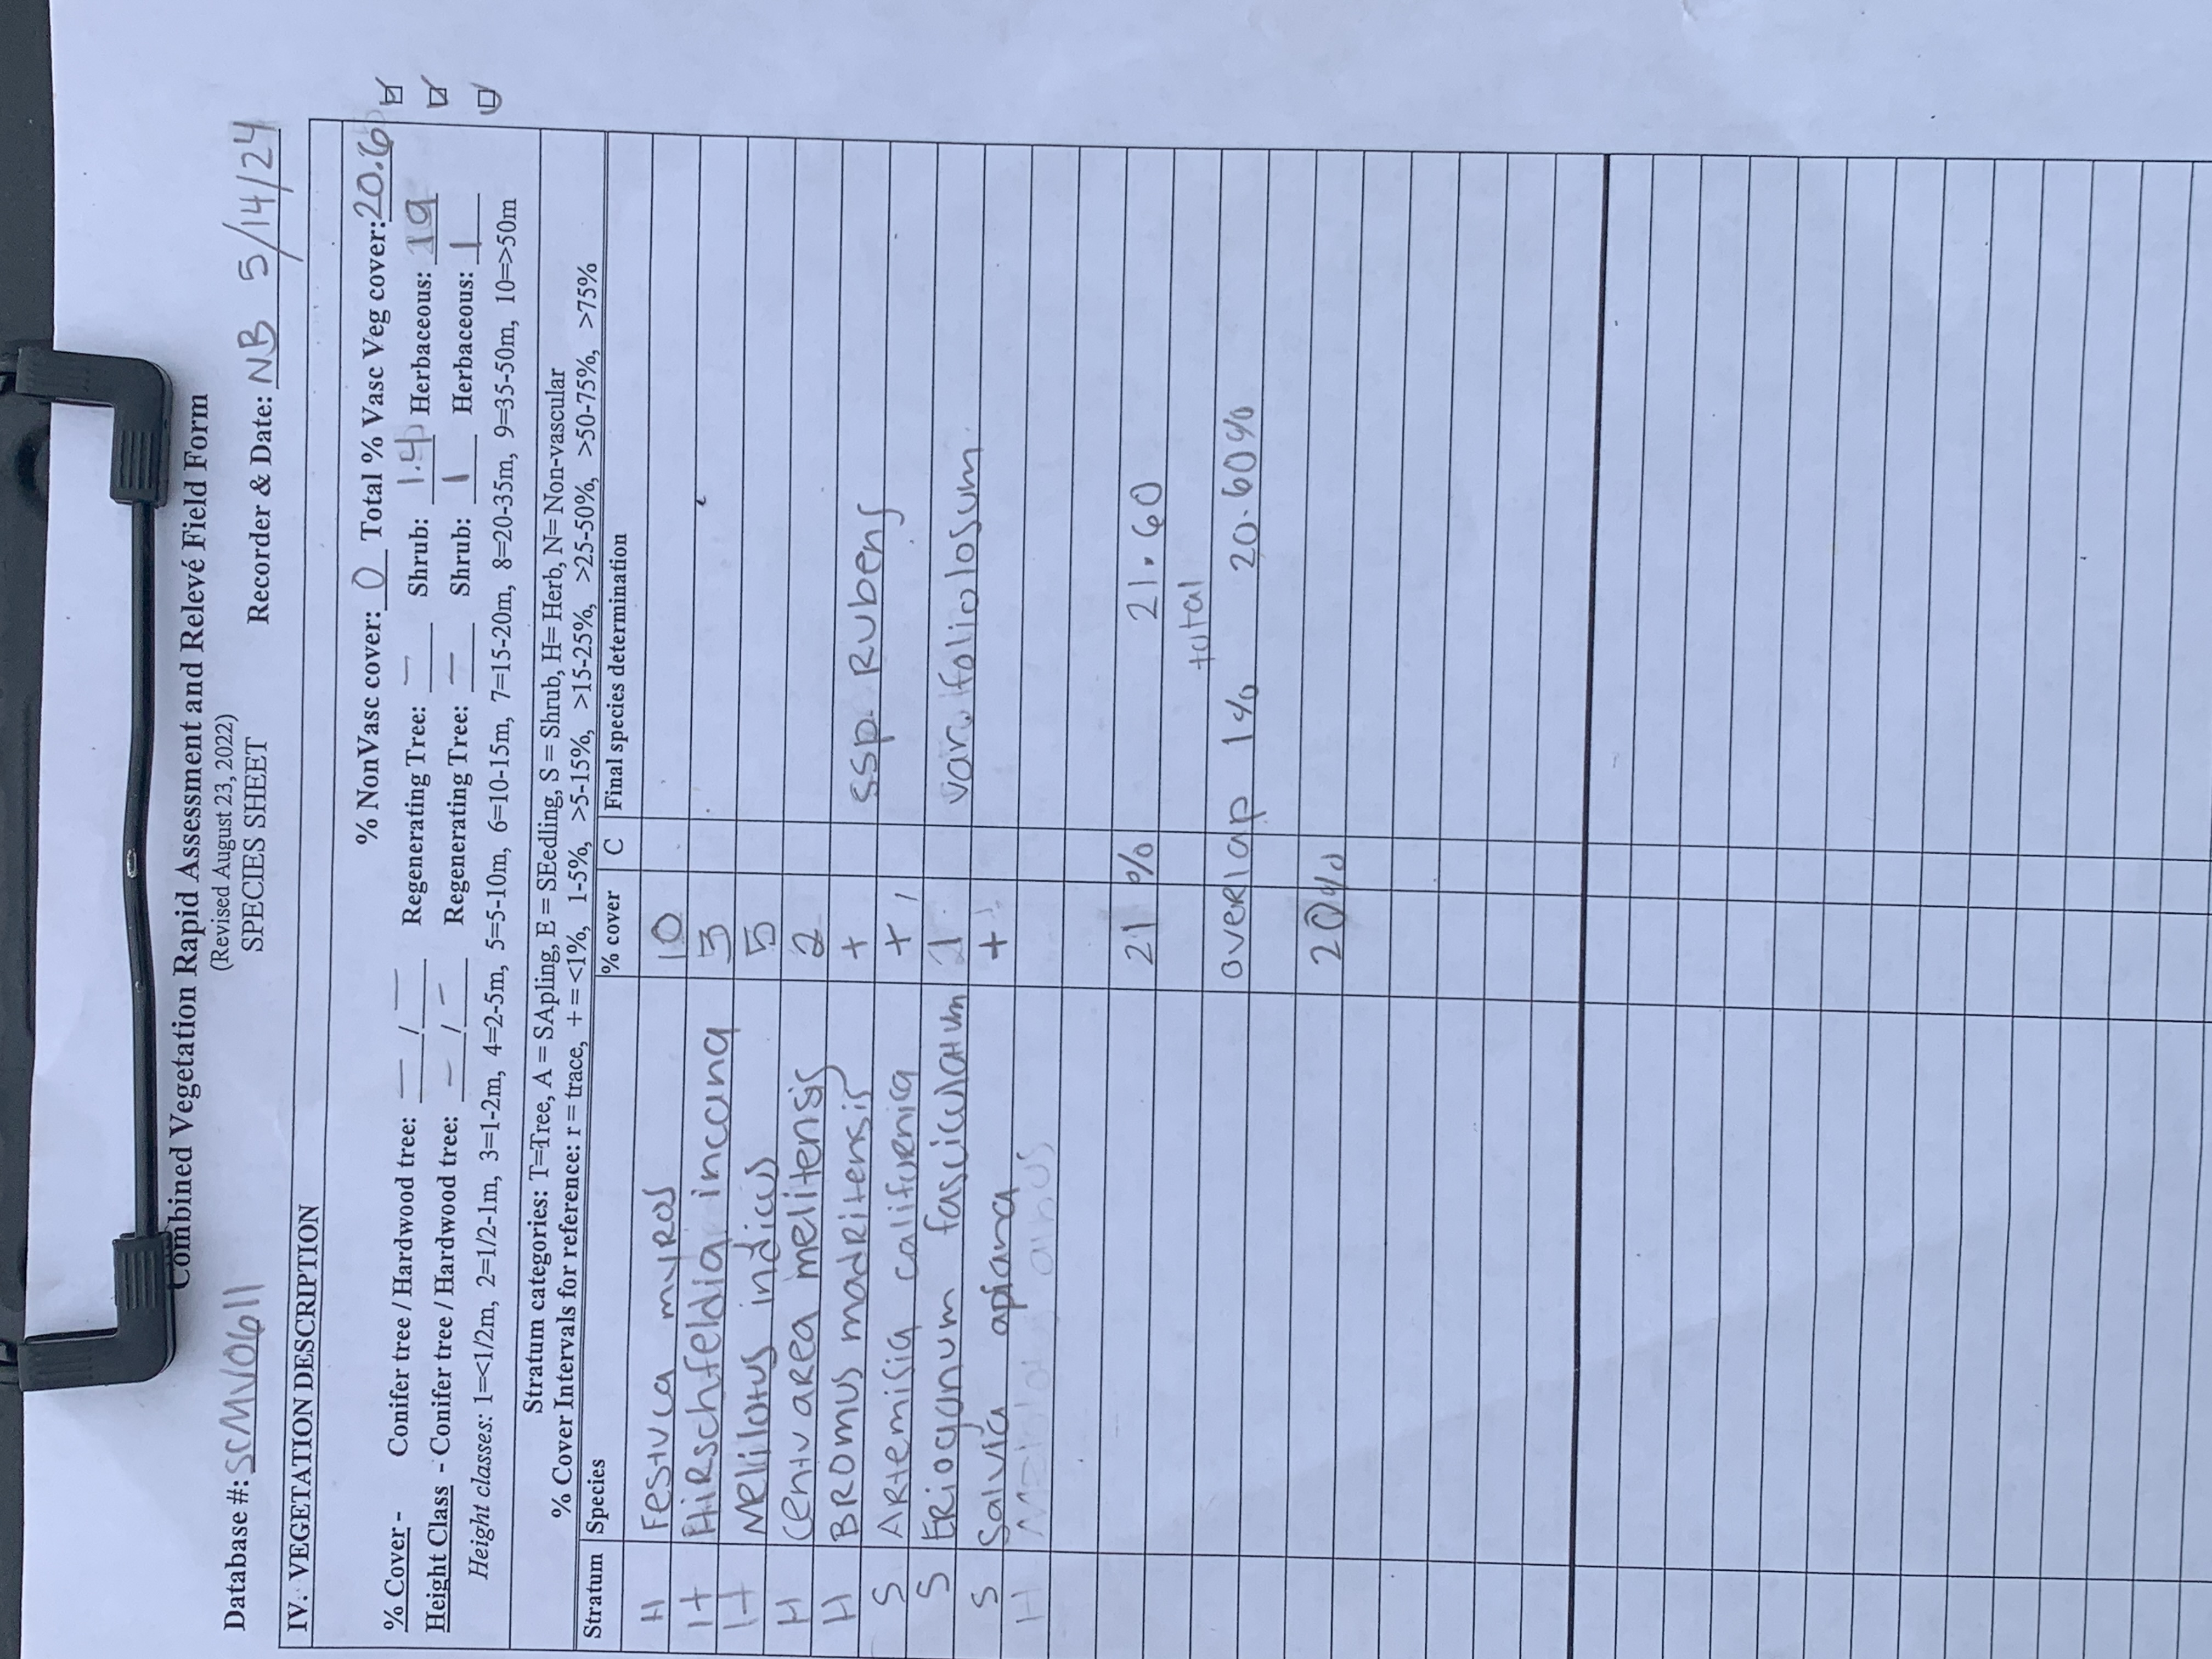 Combined Vegetation Rapid Assessment and Relevé Field Form
(Revised August 23, 2022)
SPECIES SHEET
Database #: SCMV0611 Recorder & Date: NB 5/14/24
IV. VEGETATION DESCRIPTION
% NonVasc cover: 0 Total % Vasc Veg cover: 20.6
% Cover - Conifer tree / Hardwood tree: — / — Regenerating Tree: — Shrub: 1.4 Herbaceous: 19
Height Class - Conifer tree / Hardwood tree: — / — Regenerating Tree: — Shrub: 1 Herbaceous: 1
Height classes: 1=<1/2m, 2=1/2-1m, 3=1-2m, 4=2-5m, 5=5-10m, 6=10-15m, 7=15-20m, 8=20-35m, 9=35-50m, 10=>50m
Stratum categories: T=Tree, A = SApling, E = SEedling, S = Shrub, H= Herb, N= Non-vascular
% Cover Intervals for reference: r = trace, + = <1%, 1-5%, >5-15%, >15-25%, >25-50%, >50-75%, >75%
Stratum Species % cover C Final species determination
H Festuca myros 10
H Hirschfeldia incana 3
H Melilotus indicus 5
H Centu area melitensis 2
H Bromus madritensis + ssp. Rubens
S Artemisia califurnica +
S Eriogunum fasciculatum 1 var. foliolosum
S Salvia apiana +
H Melilotus albus
21 % 21.60
total
overlap 1% 20.60%
20%